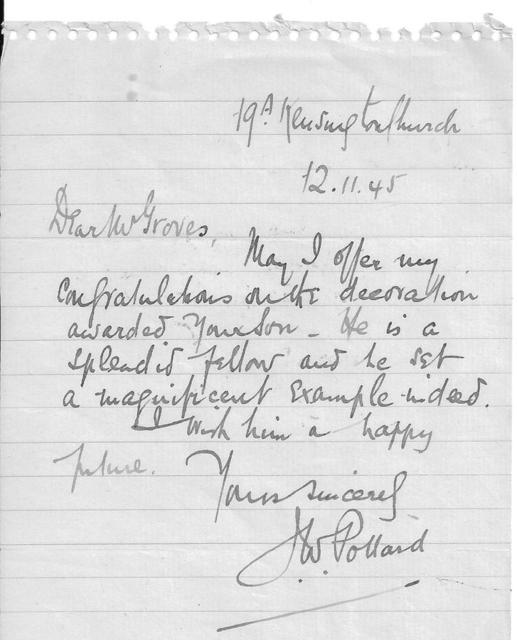 19A Kensington Church
12.11.45
Dear Mr Groves,
May I offer my
congratulations on the decoration
awarded Your Son - He is a
splendid fellow and he set
a magnificent Example indeed.
I wish him a happy
future.
Yours sincerely
J W Pollard